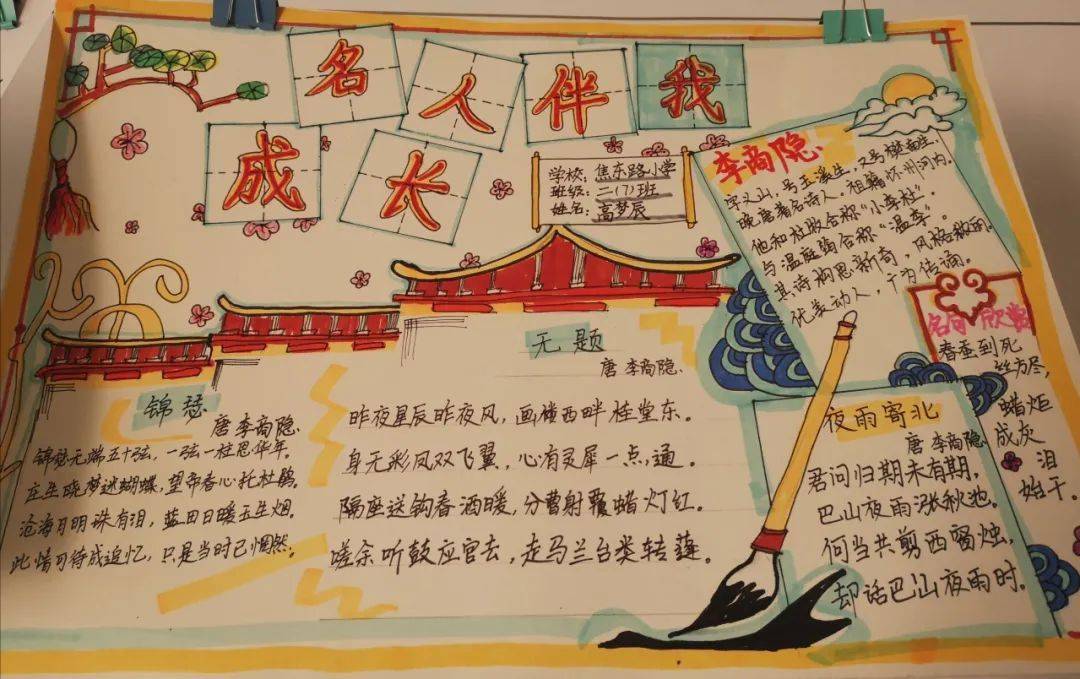 名人伴我
成长
学校:焦东路小学
班级:二(7)班
姓名:高梦辰
李商隐
字义山,号玉溪生,又号樊南生。
晚唐著名诗人,祖籍怀州河内。
他和杜牧合称“小李杜”,
与温庭筠合称“温李”。
其诗构思新奇,风格秾丽。
优美动人,广为传诵。
名句欣赏
春蚕到死
丝方尽,
蜡炬
成灰
泪
始干。
锦瑟
唐 李商隐
锦瑟无端五十弦,一弦一柱思华年。
庄生晓梦迷蝴蝶,望帝春心托杜鹃。
沧海月明珠有泪,蓝田日暖玉生烟。
此情可待成追忆,只是当时已惘然。
无题
唐 李商隐
昨夜星辰昨夜风,画楼西畔桂堂东。
身无彩凤双飞翼,心有灵犀一点通。
隔座送钩春酒暖,分曹射覆蜡灯红。
嗟余听鼓应官去,走马兰台类转蓬。
夜雨寄北
唐 李商隐
君问归期未有期,
巴山夜雨涨秋池。
何当共剪西窗烛,
却话巴山夜雨时。